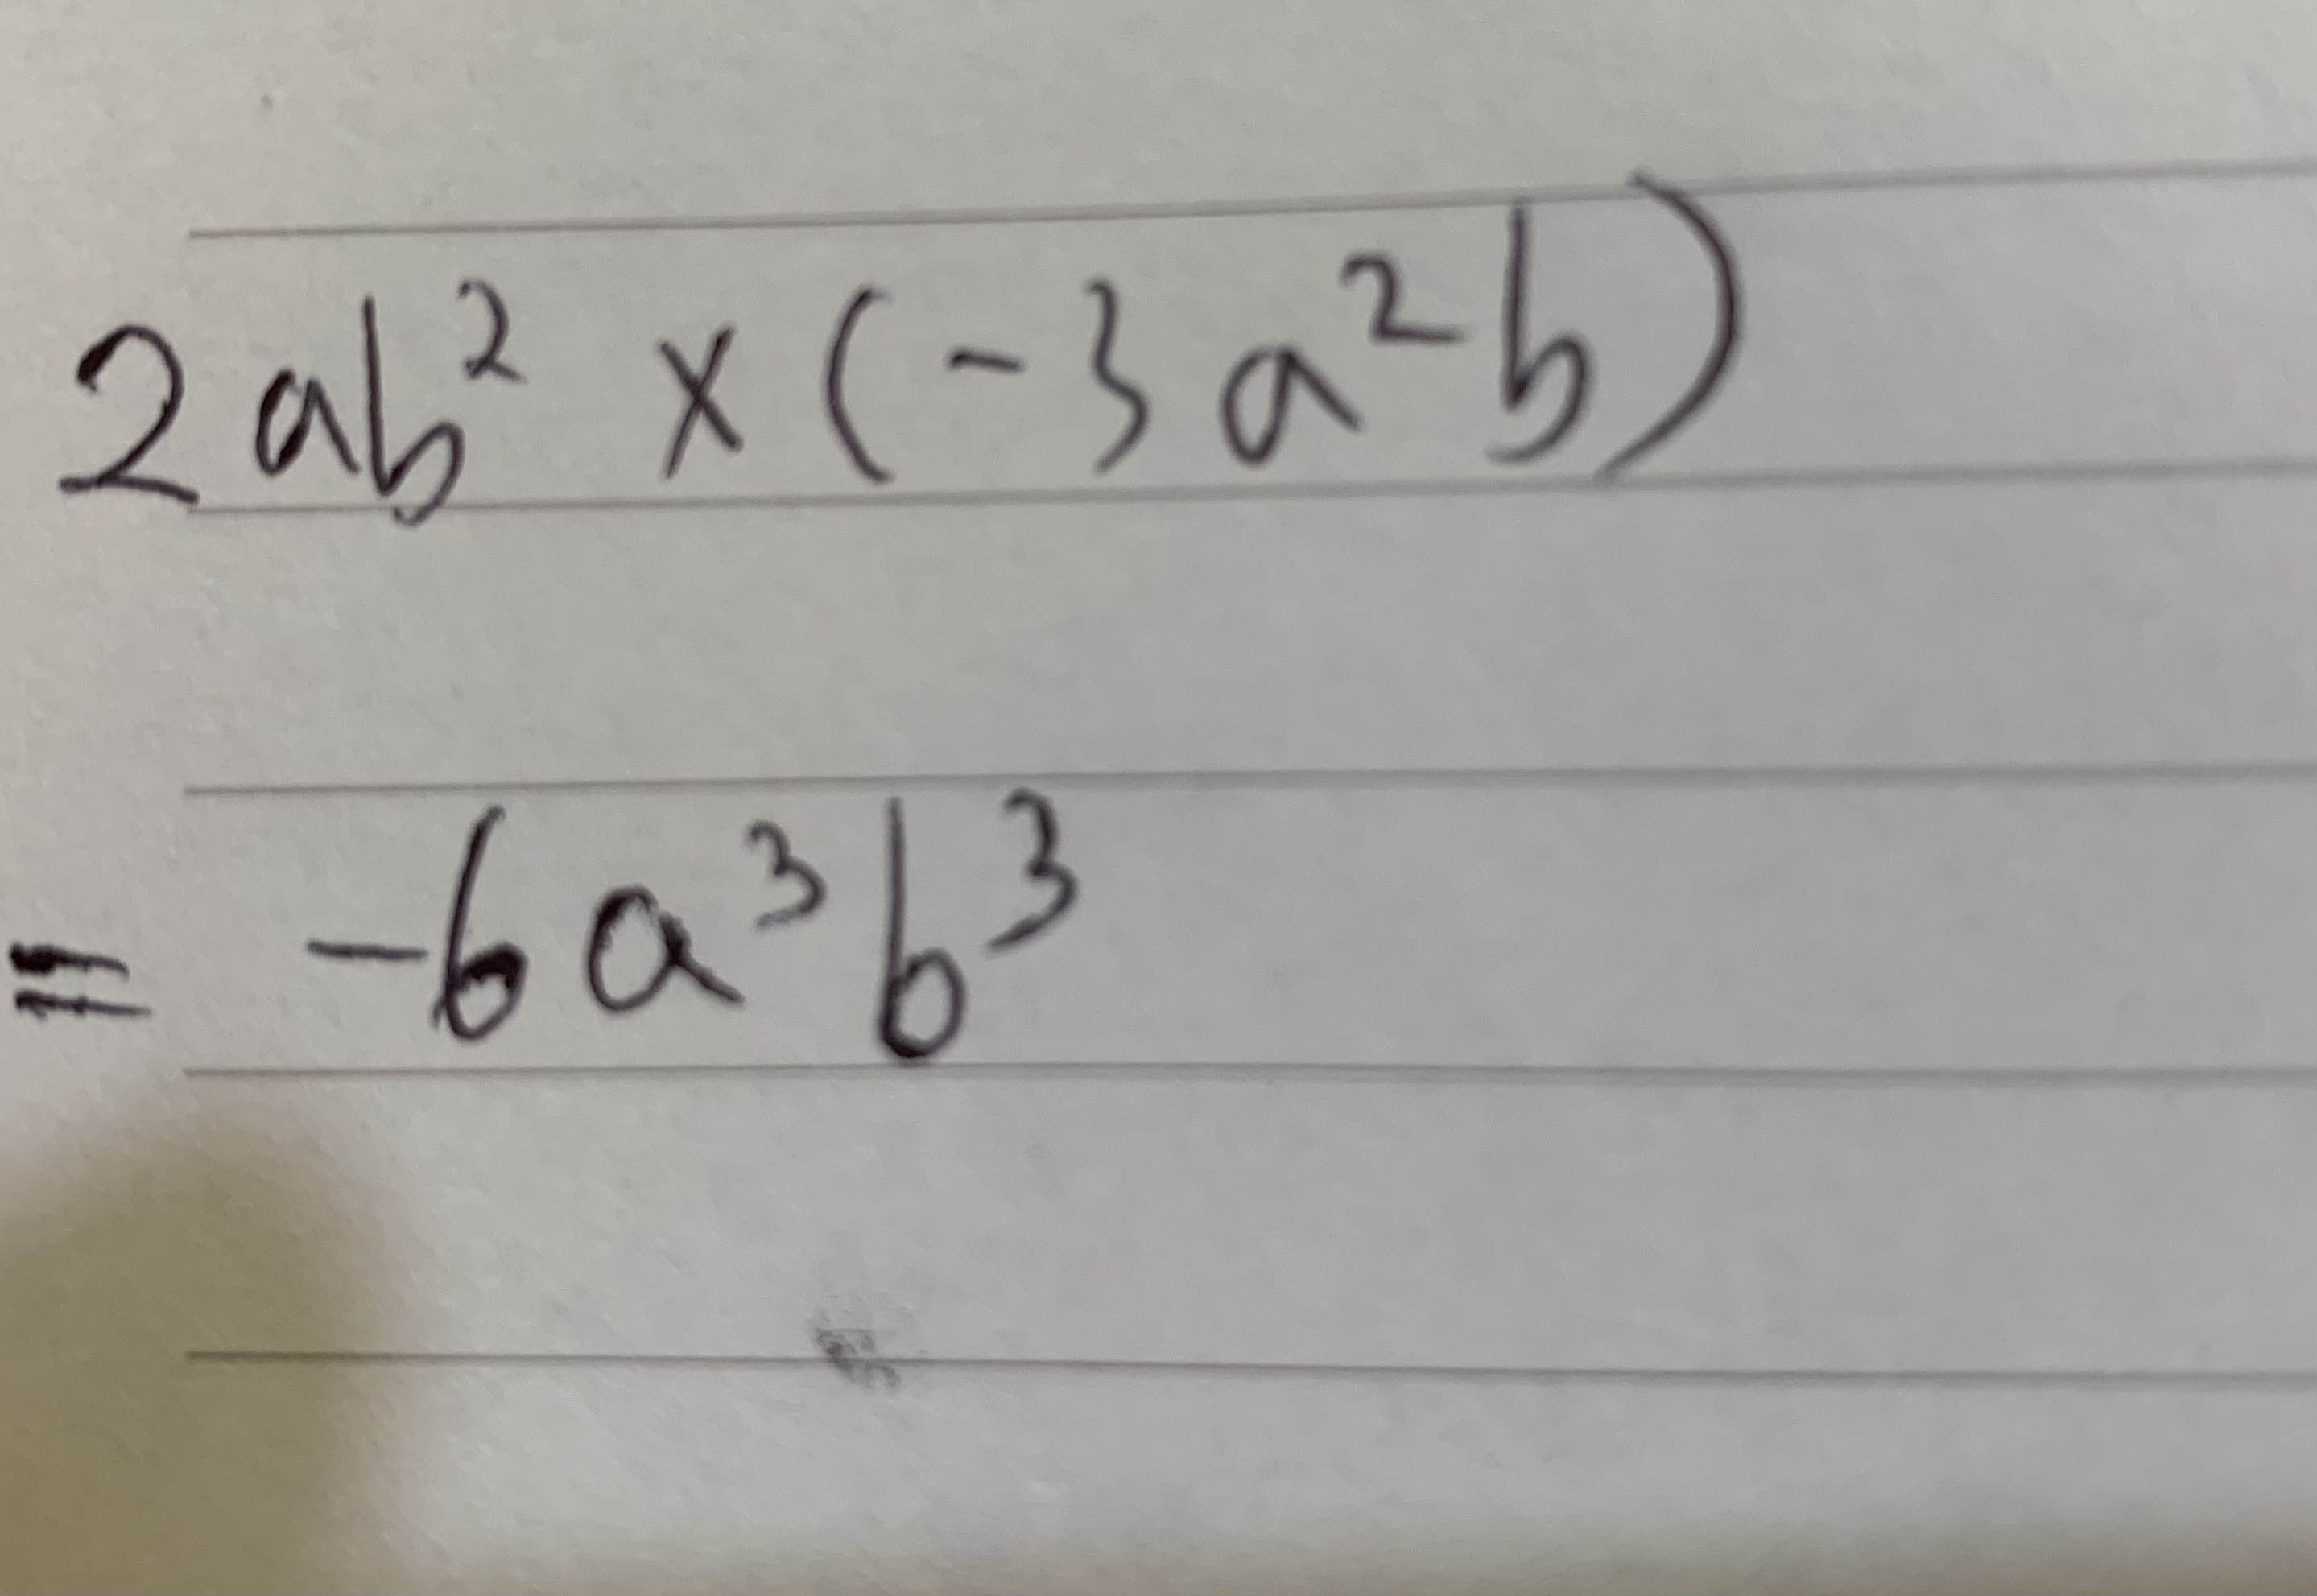 2ab² × (-3a²b)
= -6a³b³